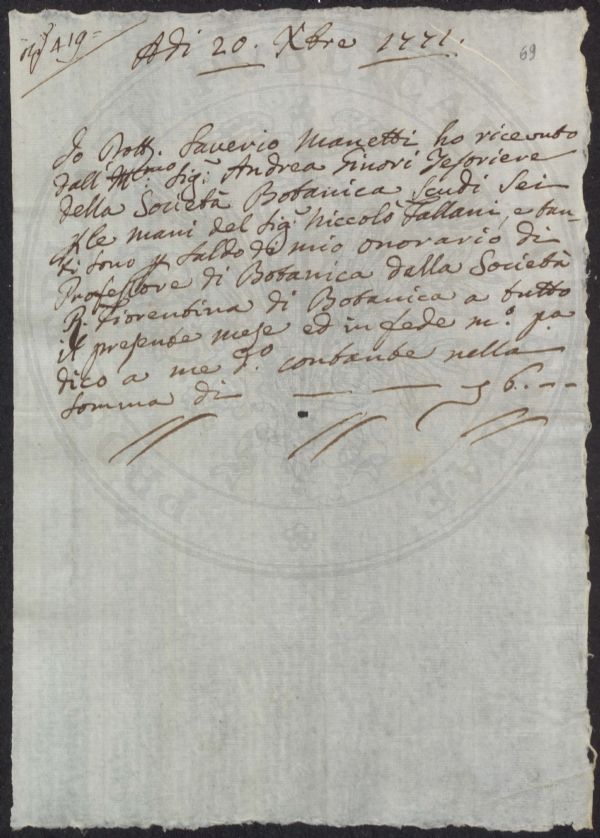 419=
69
Adi 20. Xbre 1771.
Jo Dott. Saverio Manetti ho ricevuto
dall' Ill.mo Sig.r Andrea Ginori Tesoriere
della Società Botanica Scudi Sei
p le mani del Sig.r Niccolò Fallani, e tan
ti sono p saldo di mio onorario di
Professore di Botanica dalla Società
R. Fiorentina di Botanica a tutto
il presente mese ed in fede m.o p.a
dico a me d.o contante nella
somma di — — — 6.. --